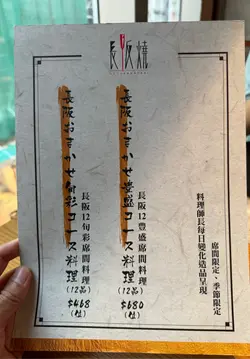 長阪燒
席間限定、季節限定
料理師長每日變化造品呈現
長阪12豐盛席間料理
長阪おまかせ豊盛コース料理
(12品)
$680
(位)
長阪12旬彩席間料理
長阪おまかせ旬彩コース料理
(12品)
$468
(位)